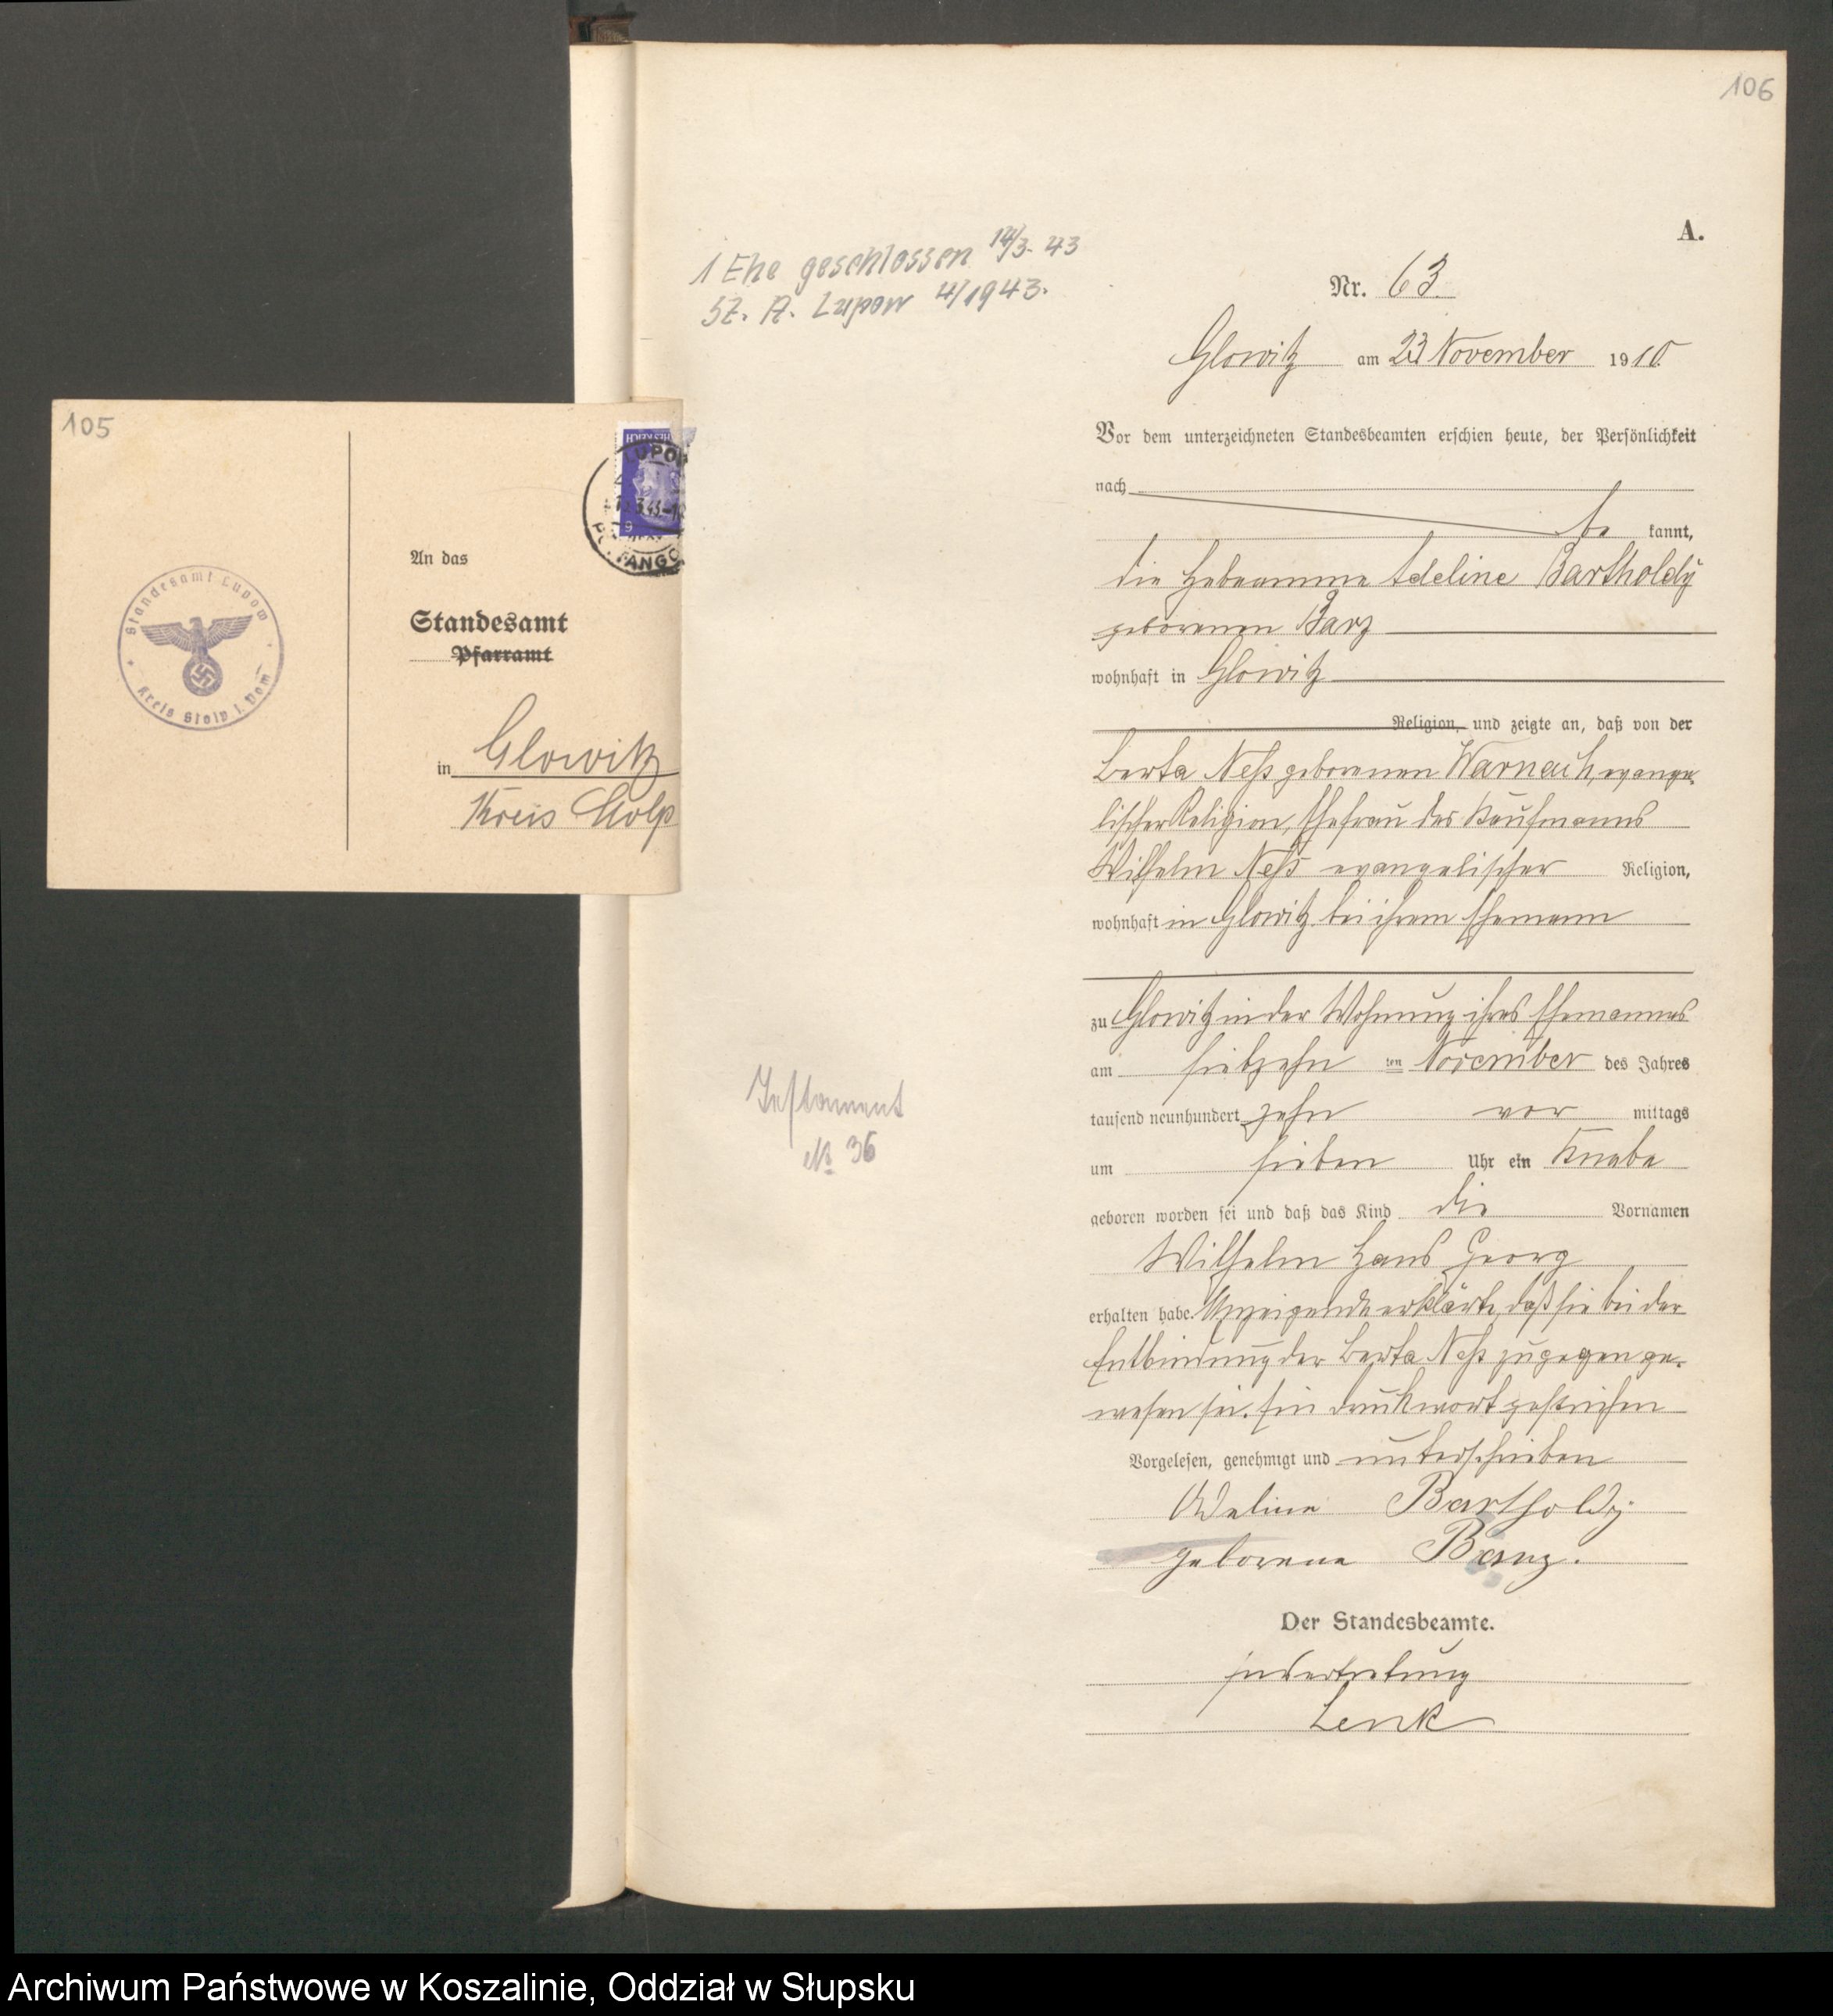 105
HES REICH
LUPOW
9
Standesamt Lupow
Kreis Stolp i. Pom
An das
Standesamt
Pfarramt
in Glowitz
Kreis Stolp
106
A.
1 Ehe geschlossen 14/3. 43
St. A. Lupow 4/1943.
Nr. 63.
Glowitz am 23 November 1910.
Vor dem unterzeichneten Standesbeamten erschien heute, der Persönlichkeit
nach
be kannt,
die Hebeamme Adeline Bartholdy
geborenen Banz
wohnhaft in Glowitz
Religion, und zeigte an, daß von der
Berta Neß geborenen Warnach, evange-
lischer Religion, Ehefrau des Kaufmanns
Wilhelm Neß evangelischer Religion,
wohnhaft in Glowitz bei ihrem Ehemann
zu Glowitz in der Wohnung ihres Ehemannes
am siebzehn ten November des Jahres
tausend neunhundert zehn vor mittags
um sieben Uhr ein Knabe
geboren worden sei und daß das Kind die Vornamen
Wilhelm Hans Georg
erhalten habe. Anzeigende erklärte, daß sie bei der
Entbindung der Berta Neß zugegen ge-
wesen sei. Ein Druckwort gestrichen
Vorgelesen, genehmigt und unterschrieben
Adeline Bartholdy
geborene Banz.
Der Standesbeamte.
In Vertretung
Lenk
Testament
No 36
Archiwum Państwowe w Koszalinie, Oddział w Słupsku